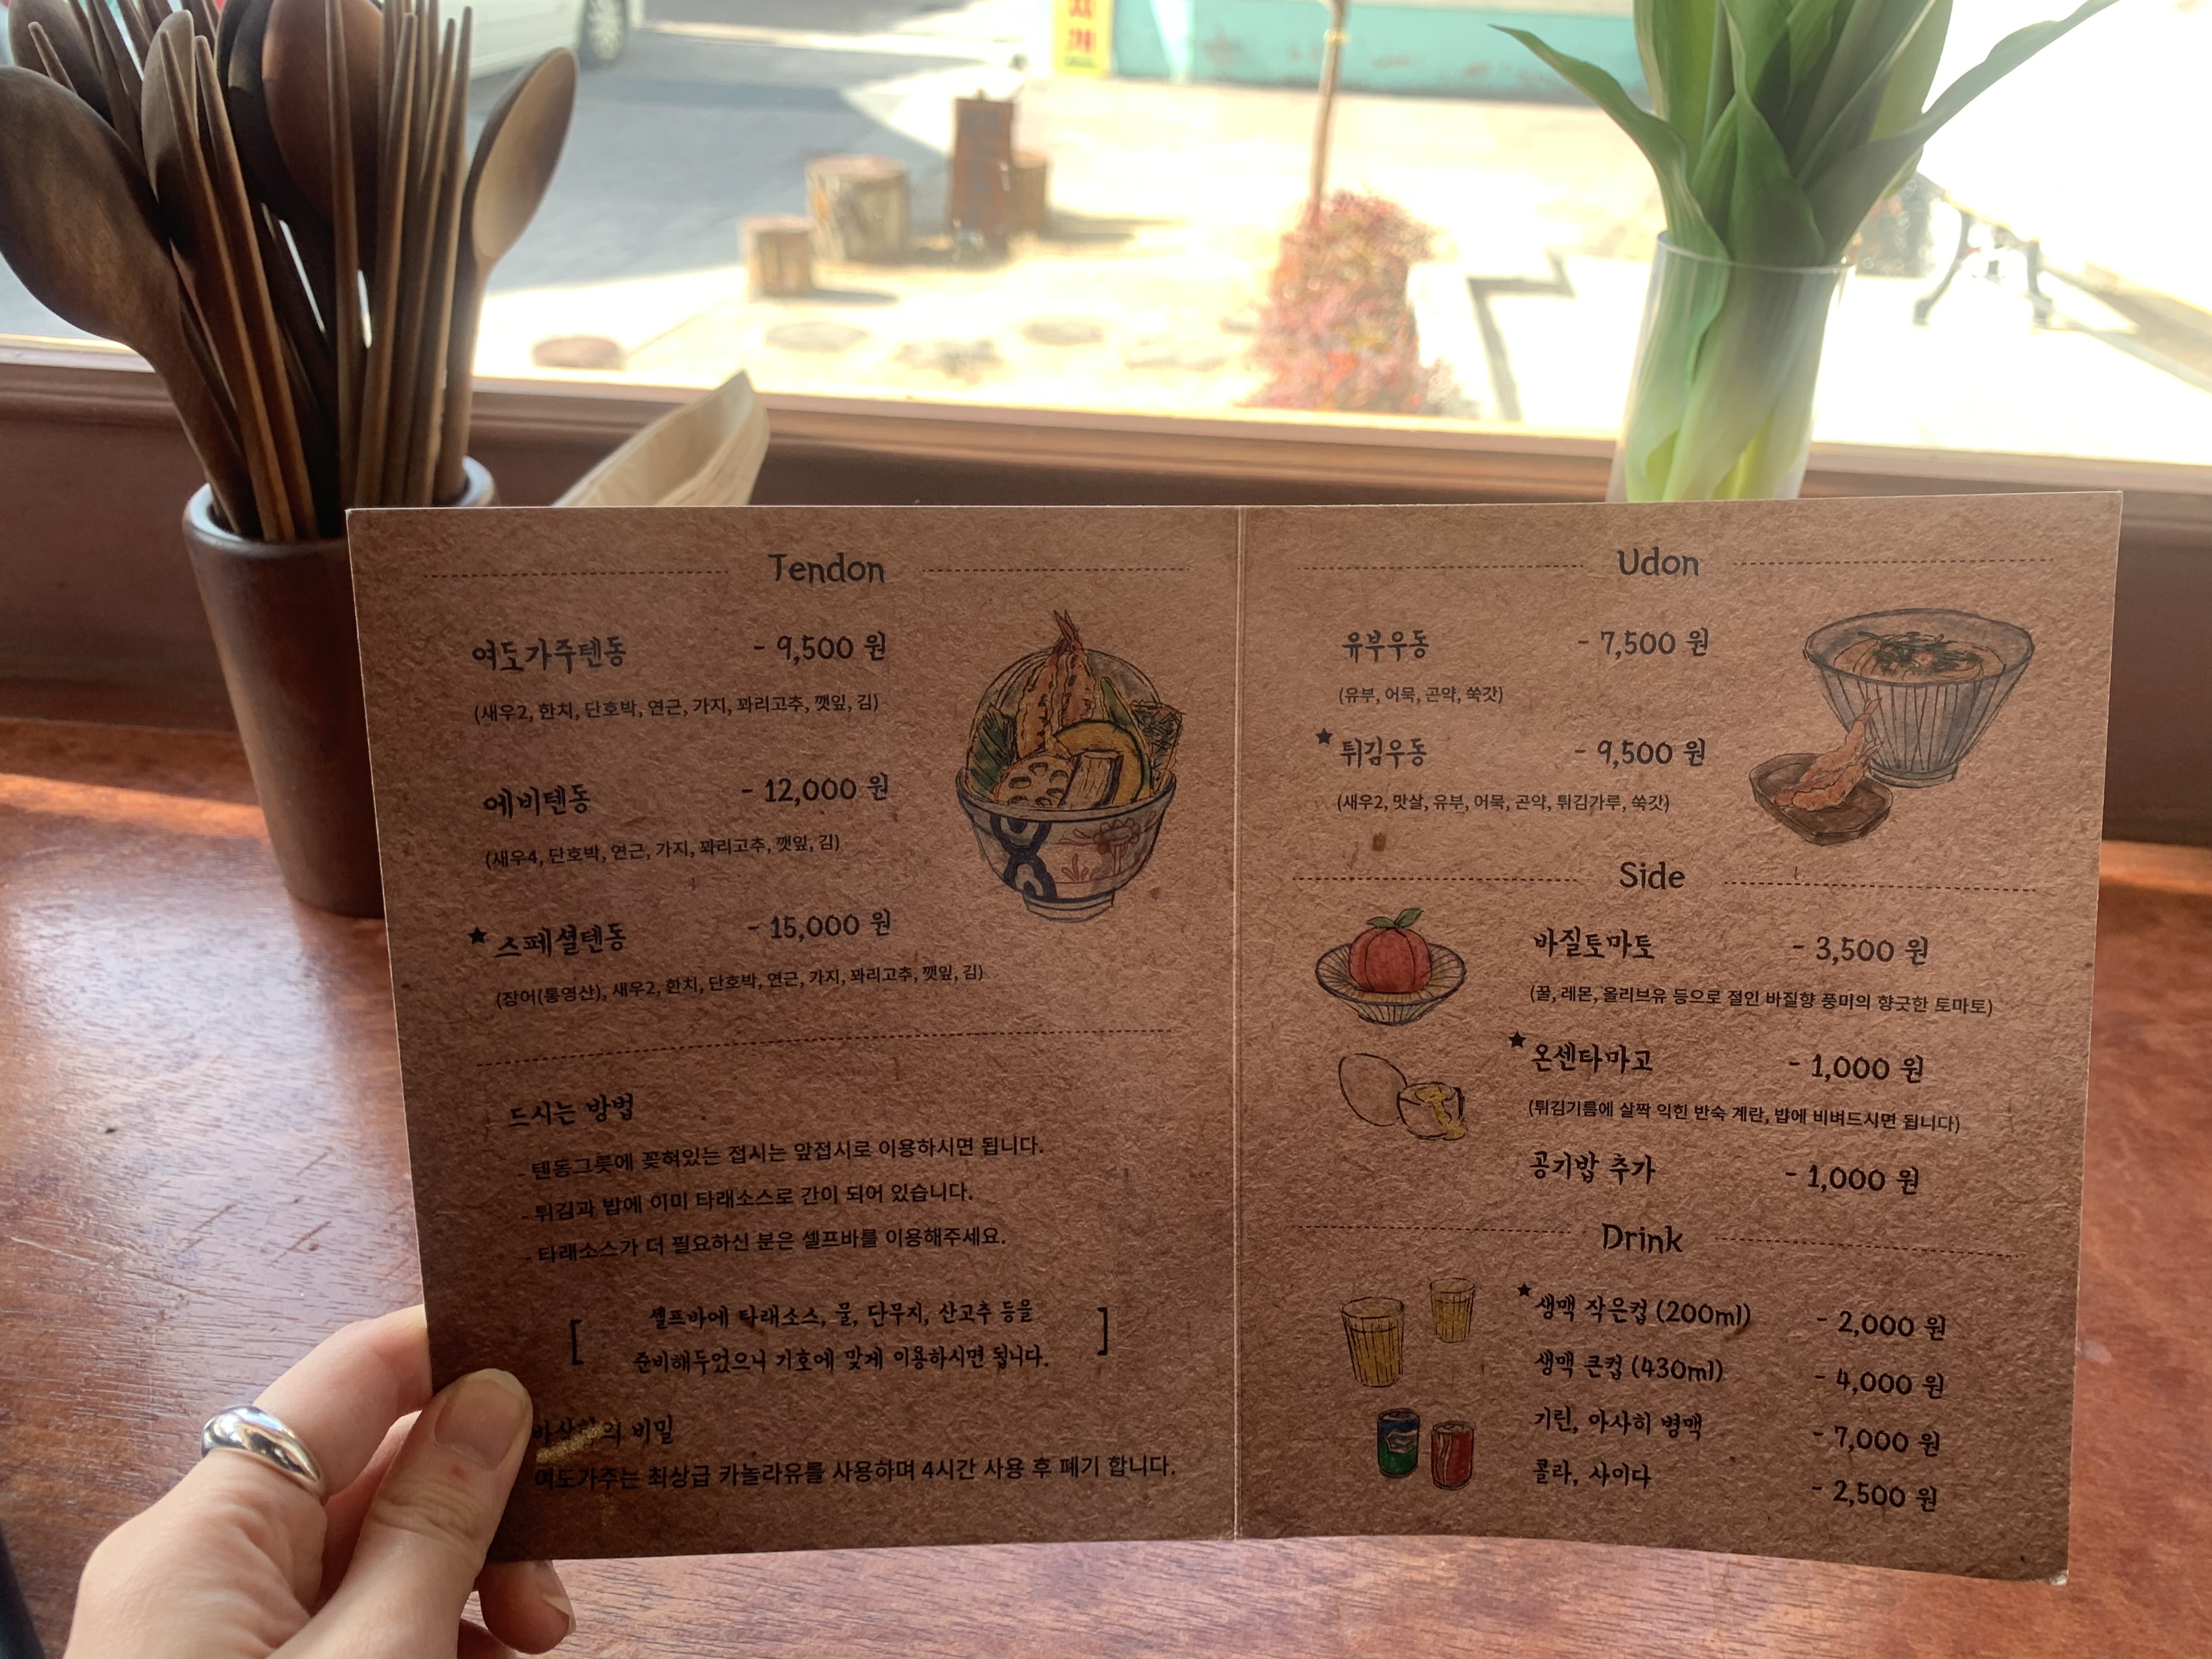 Tendon
여도가주텐동 - 9,500 원
(새우2, 한치, 단호박, 연근, 가지, 꽈리고추, 깻잎, 김)
에비텐동 - 12,000 원
(새우4, 단호박, 연근, 가지, 꽈리고추, 깻잎, 김)
★ 스페셜텐동 - 15,000 원
(장어(통영산), 새우2, 한치, 단호박, 연근, 가지, 꽈리고추, 깻잎, 김)
드시는 방법
- 텐동그릇에 꽂혀있는 접시는 앞접시로 이용하시면 됩니다.
- 튀김과 밥에 이미 타래소스로 간이 되어 있습니다.
- 타래소스가 더 필요하신 분은 셀프바를 이용해주세요.
[ 셀프바에 타래소스, 물, 단무지, 산고추 등을
준비해두었으니 기호에 맞게 이용하시면 됩니다. ]
비밀
여도가주는 최상급 카놀라유를 사용하며 4시간 사용 후 폐기 합니다.
Udon
유부우동 - 7,500 원
(유부, 어묵, 곤약, 쑥갓)
★ 튀김우동 - 9,500 원
(새우2, 맛살, 유부, 어묵, 곤약, 튀김가루, 쑥갓)
Side
바질토마토 - 3,500 원
(꿀, 레몬, 올리브유 등으로 절인 바질향 풍미의 향긋한 토마토)
★ 온센타마고 - 1,000 원
(튀김기름에 살짝 익힌 반숙 계란, 밥에 비벼드시면 됩니다)
공기밥 추가 - 1,000 원
Drink
★ 생맥 작은컵 (200ml) - 2,000 원
생맥 큰컵 (430ml) - 4,000 원
기린, 아사히 병맥 - 7,000 원
콜라, 사이다 - 2,500 원